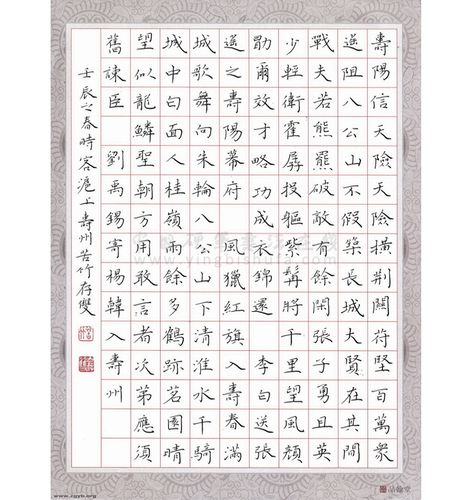 壽陽信天險天險橫荆關苻堅百萬衆
遥阻八公山不假築長城大賢在其間
戰夫若熊羆破敵有餘閑張子勇且英
少輕衛霍孱投軀紫髯將千里望風顔
勖爾效才略功成衣錦還 李白送張
遥之壽陽幕府 風獵紅旗入壽春滿
城歌舞向朱輪八公山下清淮水千騎
城中白面人桂嶺雨餘多鶴跡茗園晴
望似龍鱗聖朝方用敢言者次第應須
舊諫臣 劉禹錫寄楊韓入壽州
壬辰之春時客滬上壽州苦竹存雙
品翰堂
www.zgyb.org